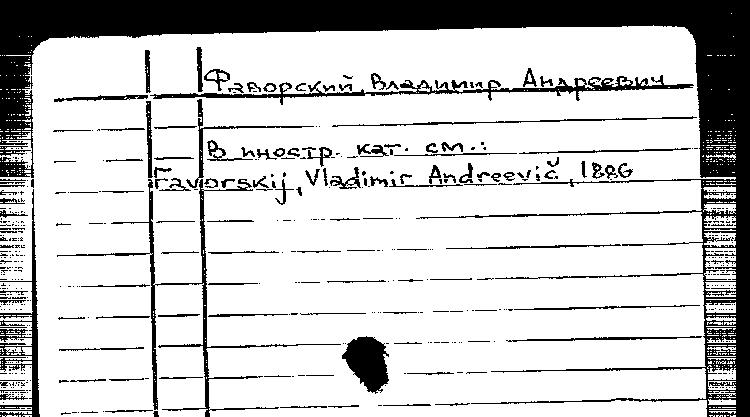 Фаворский, Владимир Андреевич
В иностр. кат. см.:
Favorskij, Vladimir Andreevič, 1886